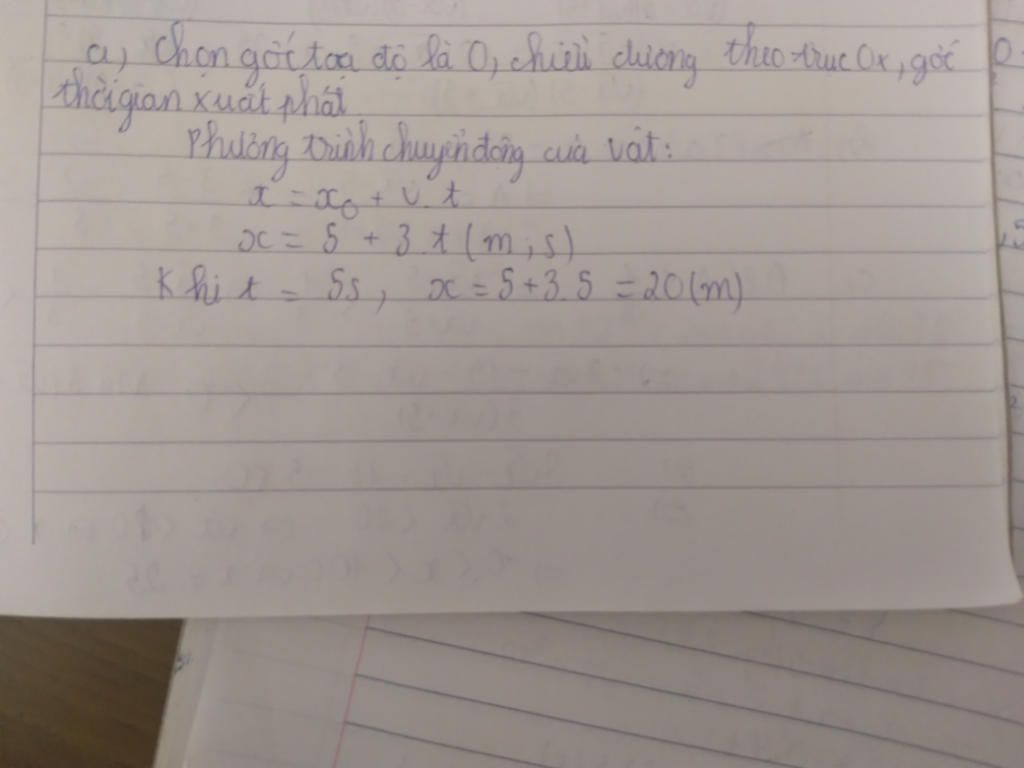 a, Chọn gốc toạ độ là O, chiều dương theo trục Ox, gốc
thời gian xuất phát
Phương trình chuyển động của vật:
x = x₀ + v. t
x = 5 + 3. t (m, s)
Khi t = 5s, x = 5+3.5 = 20(m)